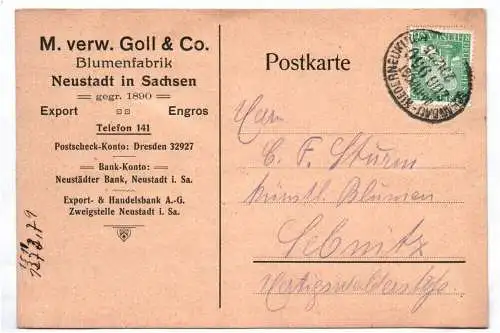 M. verw. Goll & Co.
Blumenfabrik
Neustadt in Sachsen
gegr. 1890
Export Engros
Telefon 141
Postscheck-Konto: Dresden 32927
Bank-Konto:
Neustädter Bank, Neustadt i. Sa.
Export- & Handelsbank A.-G.
Zweigstelle Neustadt i. Sa.
Postkarte
Herrn
C. F. Sturm
künstl. Blumen
Sebnitz